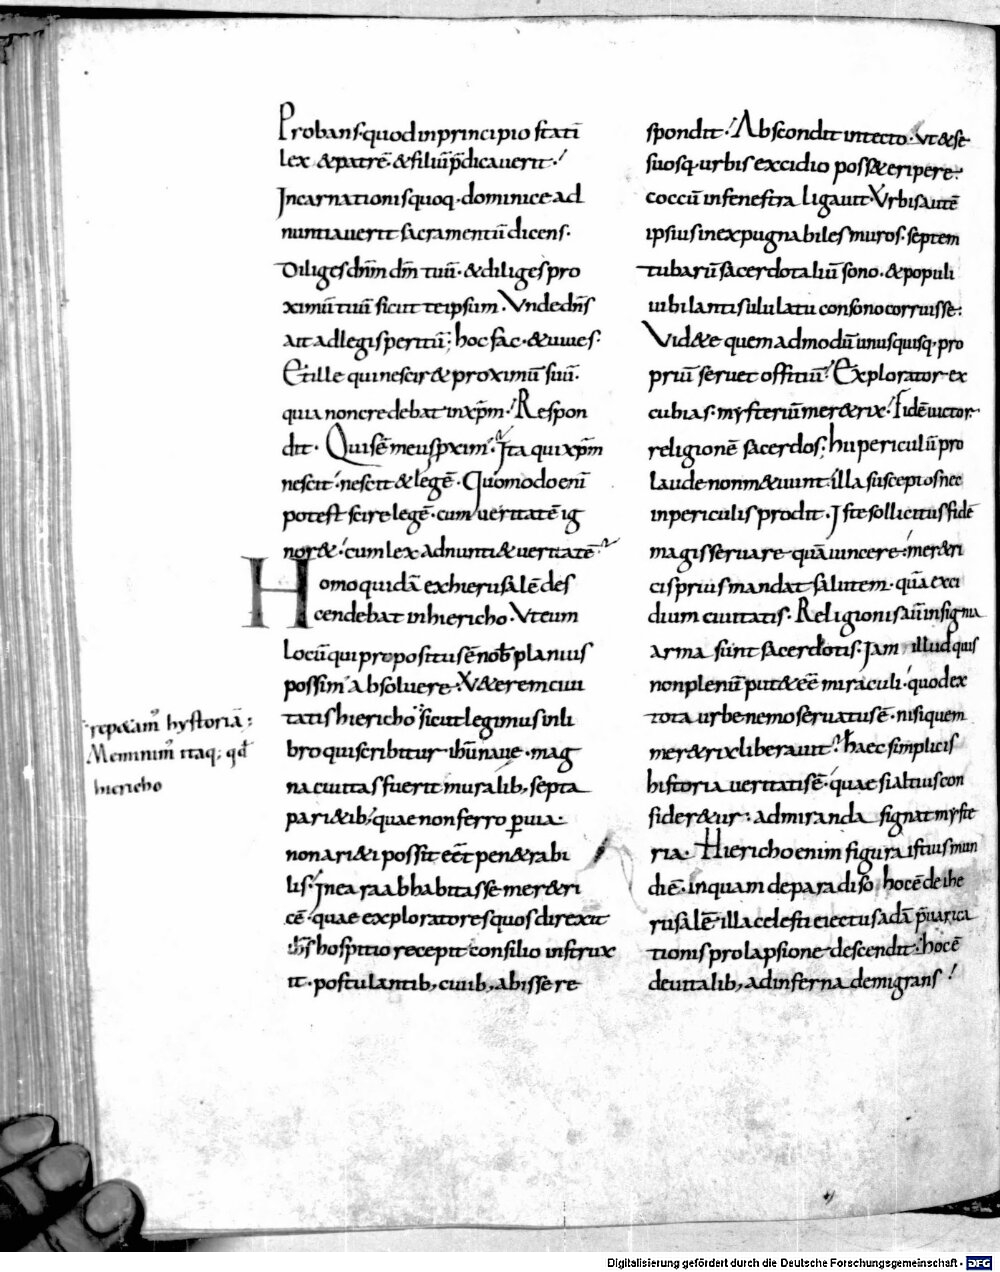 Probans quod inprincipio stati
lex &patrē· &filiū p̄dicauerit·
Incarnationis quoq· dominice ad
nuntiauerit sacramentū dicens·
Diliges dn̄m dm̄ tuū· &diliges pro
ximū tuū sicut teipsum· Vnde dn̄s
ait ad legisperitū; hoc fac· &uiues·
Et ille qui nescir& proximū suū·
quia non credebat in xp̄m· Respon
dit· Quis ē meus p̱ximˀ· Ita qui xp̄m
nescit· nescit &legē· Quomodo enī
potest scire legē· cum ueritatē ig
nor&· cum lex adnunti& ueritatē·
Homo quidā ex hierusalē des
cendebat in hiericho· Vt eum
locū qui propositus ē nob̄ planius
possimˀ absoluere· V&erem ciui
tatis hiericho sicut legimus in li
bro qui scribitur ihū naue· mag
na ciuitas fuerit muralib; septa
pari&ib; quae non ferro ꝑuia·
non ari&i possit eēt pen&rabi
lis· In ea raab habitasse mer&ri
cē· quae exploratores quos direxit
ih̄s hospitio recepit consilio instrux
it· postulantib; ciuib; abisse re
rep&amˀ hystoriā;
Meminimˀ itaq; qđ
hiericho
spondit· Abscondit in tecto· Vt &se
suosq· urbis excidio poss& eripere·
coccū in fenestra ligauit· Vrbis autē
ipsius inexpugnabiles muros· septem
tubarū sacerdotaliū sono· &populi
iubilantis ululatu consono corruisse·
Vid&e quem admodū unusquisq· pro
priū seruet offitiū· Explorator ex
cubias· mysteriū mer&rix· Fidē uictor·
religionē sacerdos; hii periculū pro
laude non m&uunt· illa susceptos nec
in periculis prodit· Iste sollicitus fidē
magis seruare quā uincere· mer&ri
cis prius mandat salutem· quā exci
dium ciuitatis· Religionis aūt insignia
arma sunt sacerdotis· Iam illud quis
non plenū put& eē miraculi· quod ex
tota urbe nemo seruatus ē· nisi quem
mer&rix liberauit· haec simplicis
historia ueritatis ē· quae si altius con
sider&ur· admiranda signat myste
ria· Hiericho enim figura istius mun
di ē· in quam de paradiso hoc ē de ihe
rusalē illa celesti eiectus adā p̄uarica
tionis prolapsione descendit· hoc ē
de uitalib; ad inferna demigrans
Digitalisierung gefördert durch die Deutsche Forschungsgemeinschaft - DFG